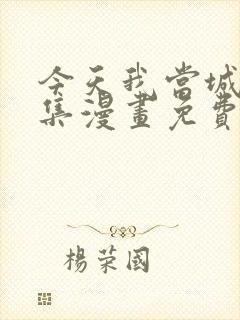 今天我當城
集漫畫免費
楊荣國